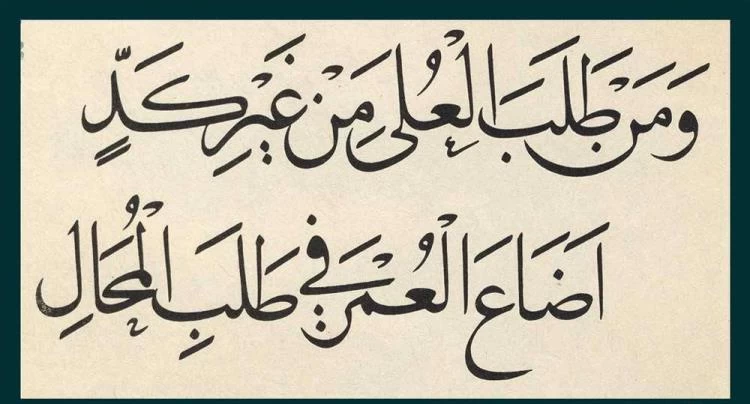 وَمَنْ طَلَبَ الْعُلى مِنْ غَيْرِ كَدٍّ
اَضَاعَ الْعُمْرَ فِي طَلَبِ الْمُحَالِ